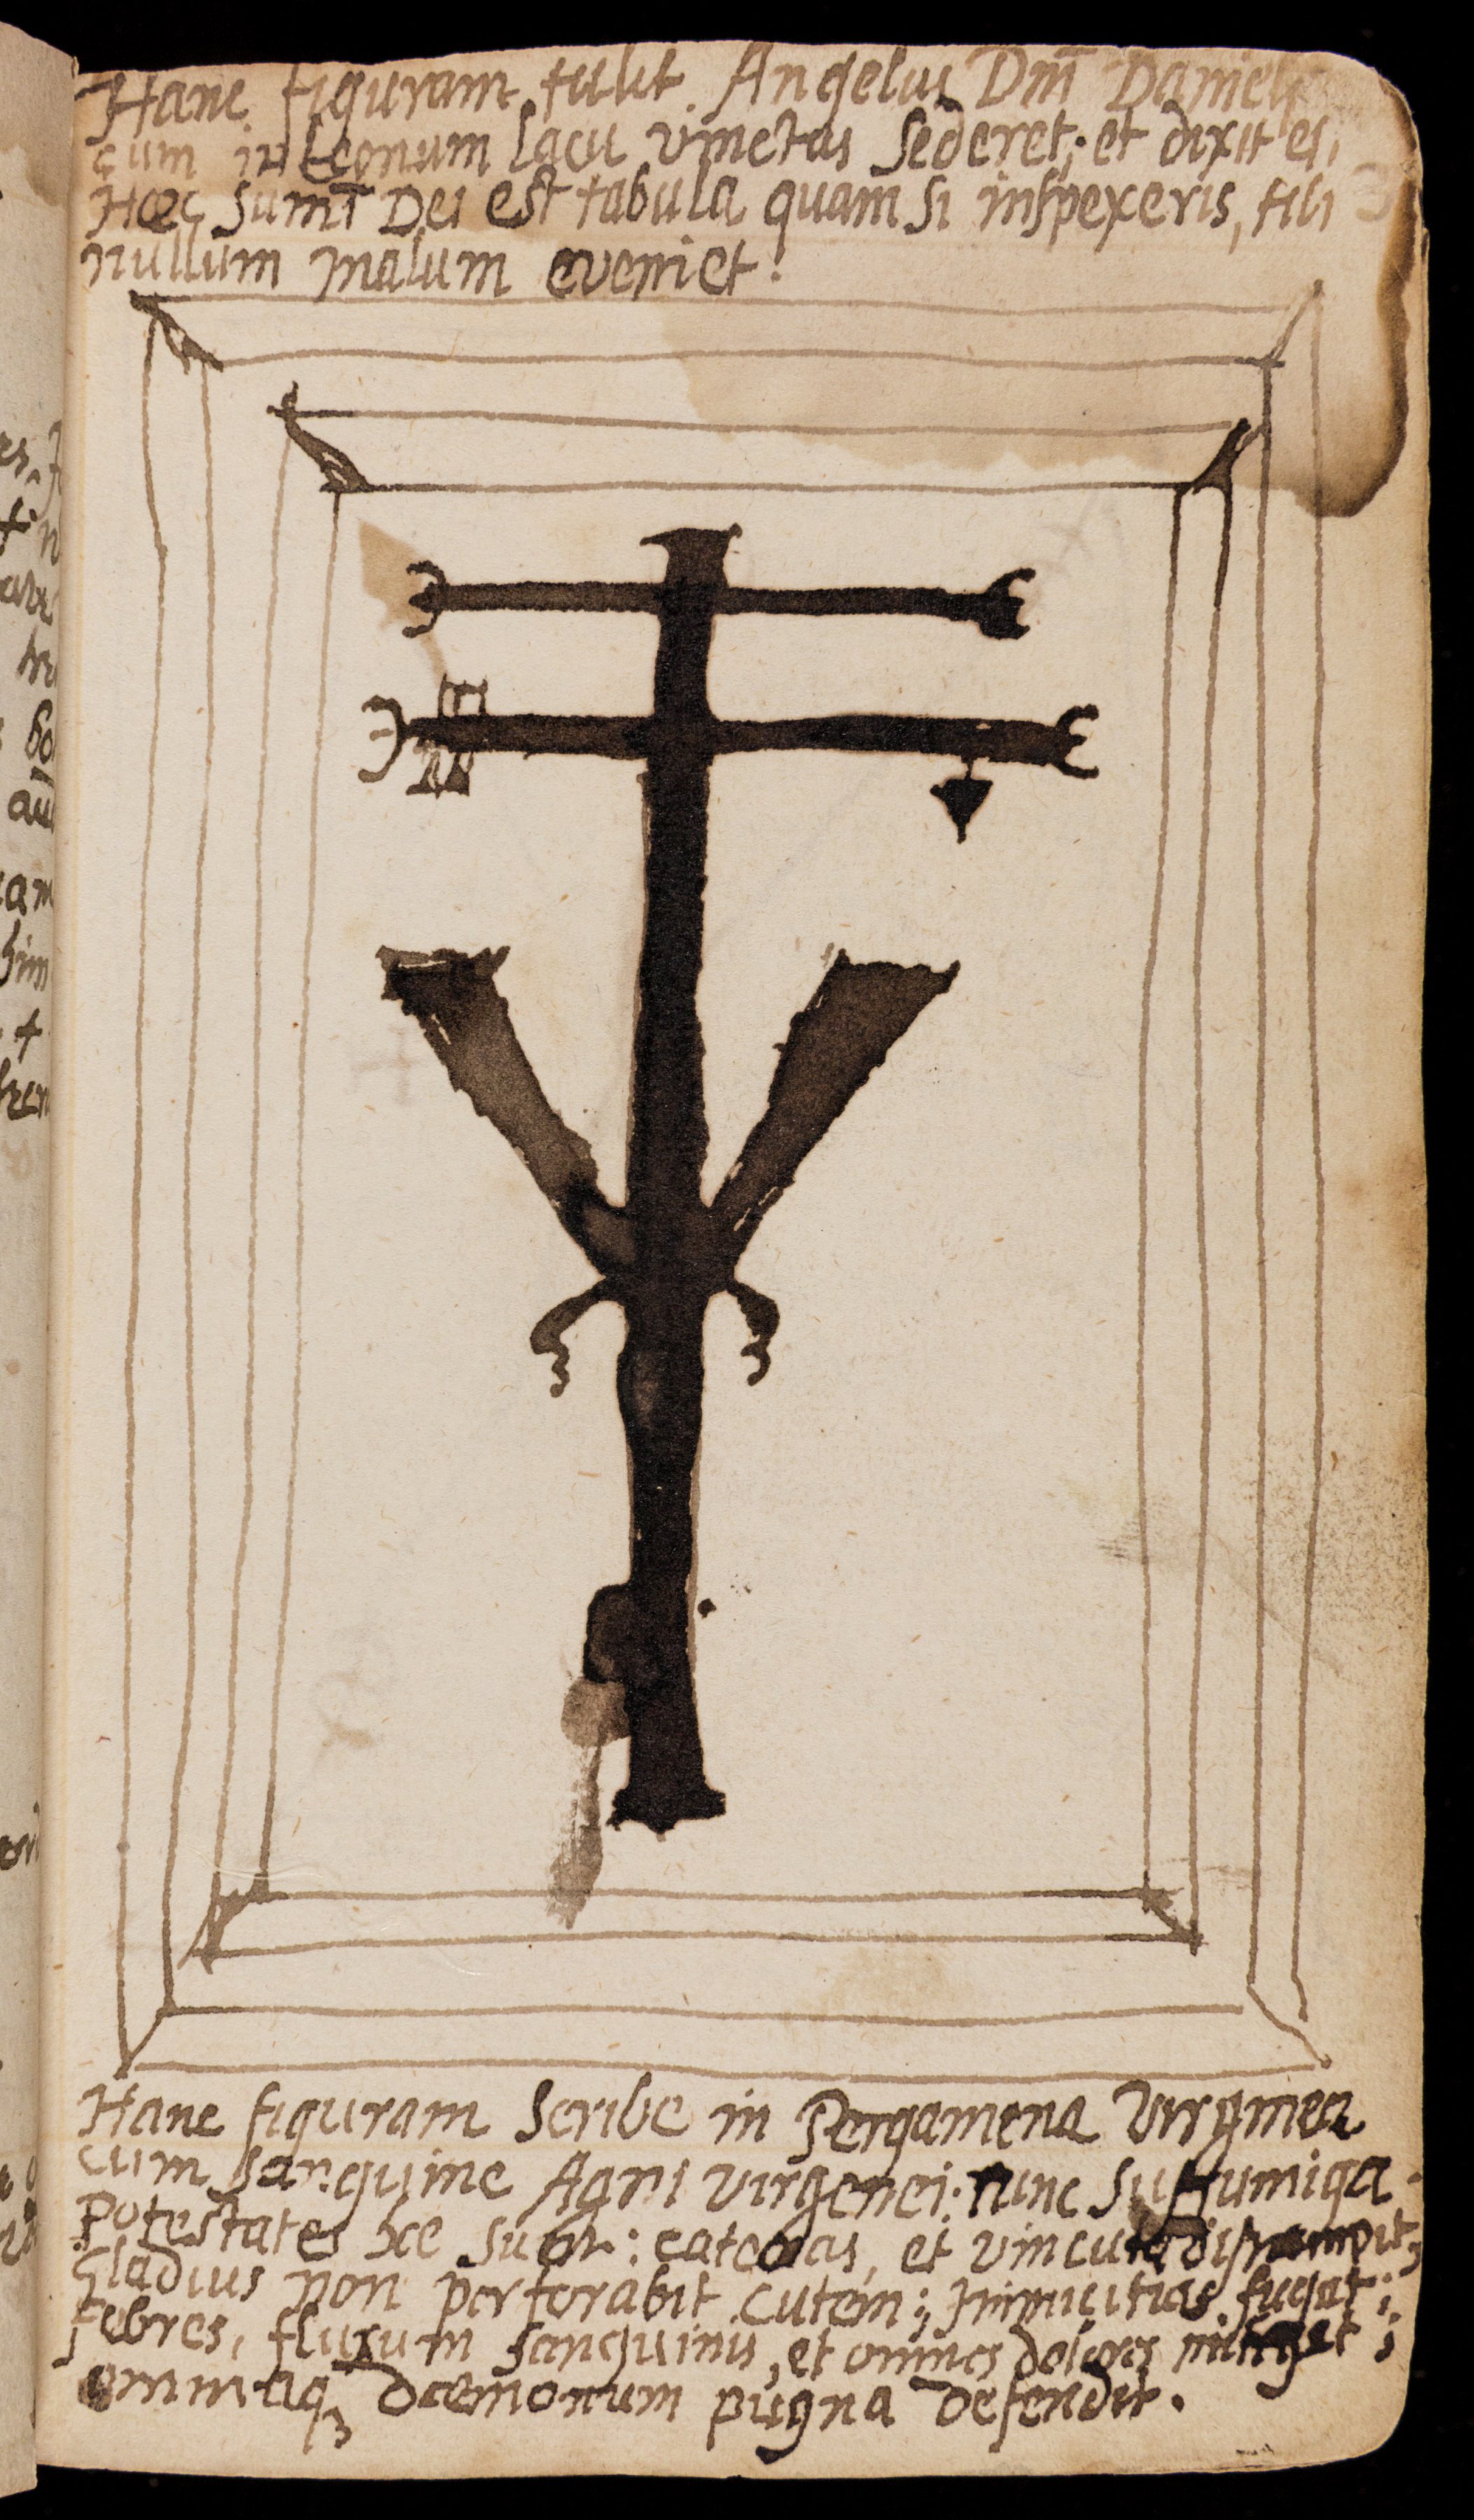 Hanc figuram tulit Angelus Dnī Danieli
cum in Leonum Lacu vinctus Sederet; et dixit ei,
Hæc Sumī Dei est tabula quam si inspexeris, tibi
nullum malum eveniet.
Hanc figuram Scribe in Pergamena Virginea
cum sanguine Agni virgenei. nunc Suffumiga.
Potestates hæ sunt: catenas, et vincula disrumpit,
Gladius non perforabit cutem; Inimicitias fugat;
Febres, fluxum sanguinis, et omnes dolores mitiget;
omniaq₃ dæmonum pugna defendit.